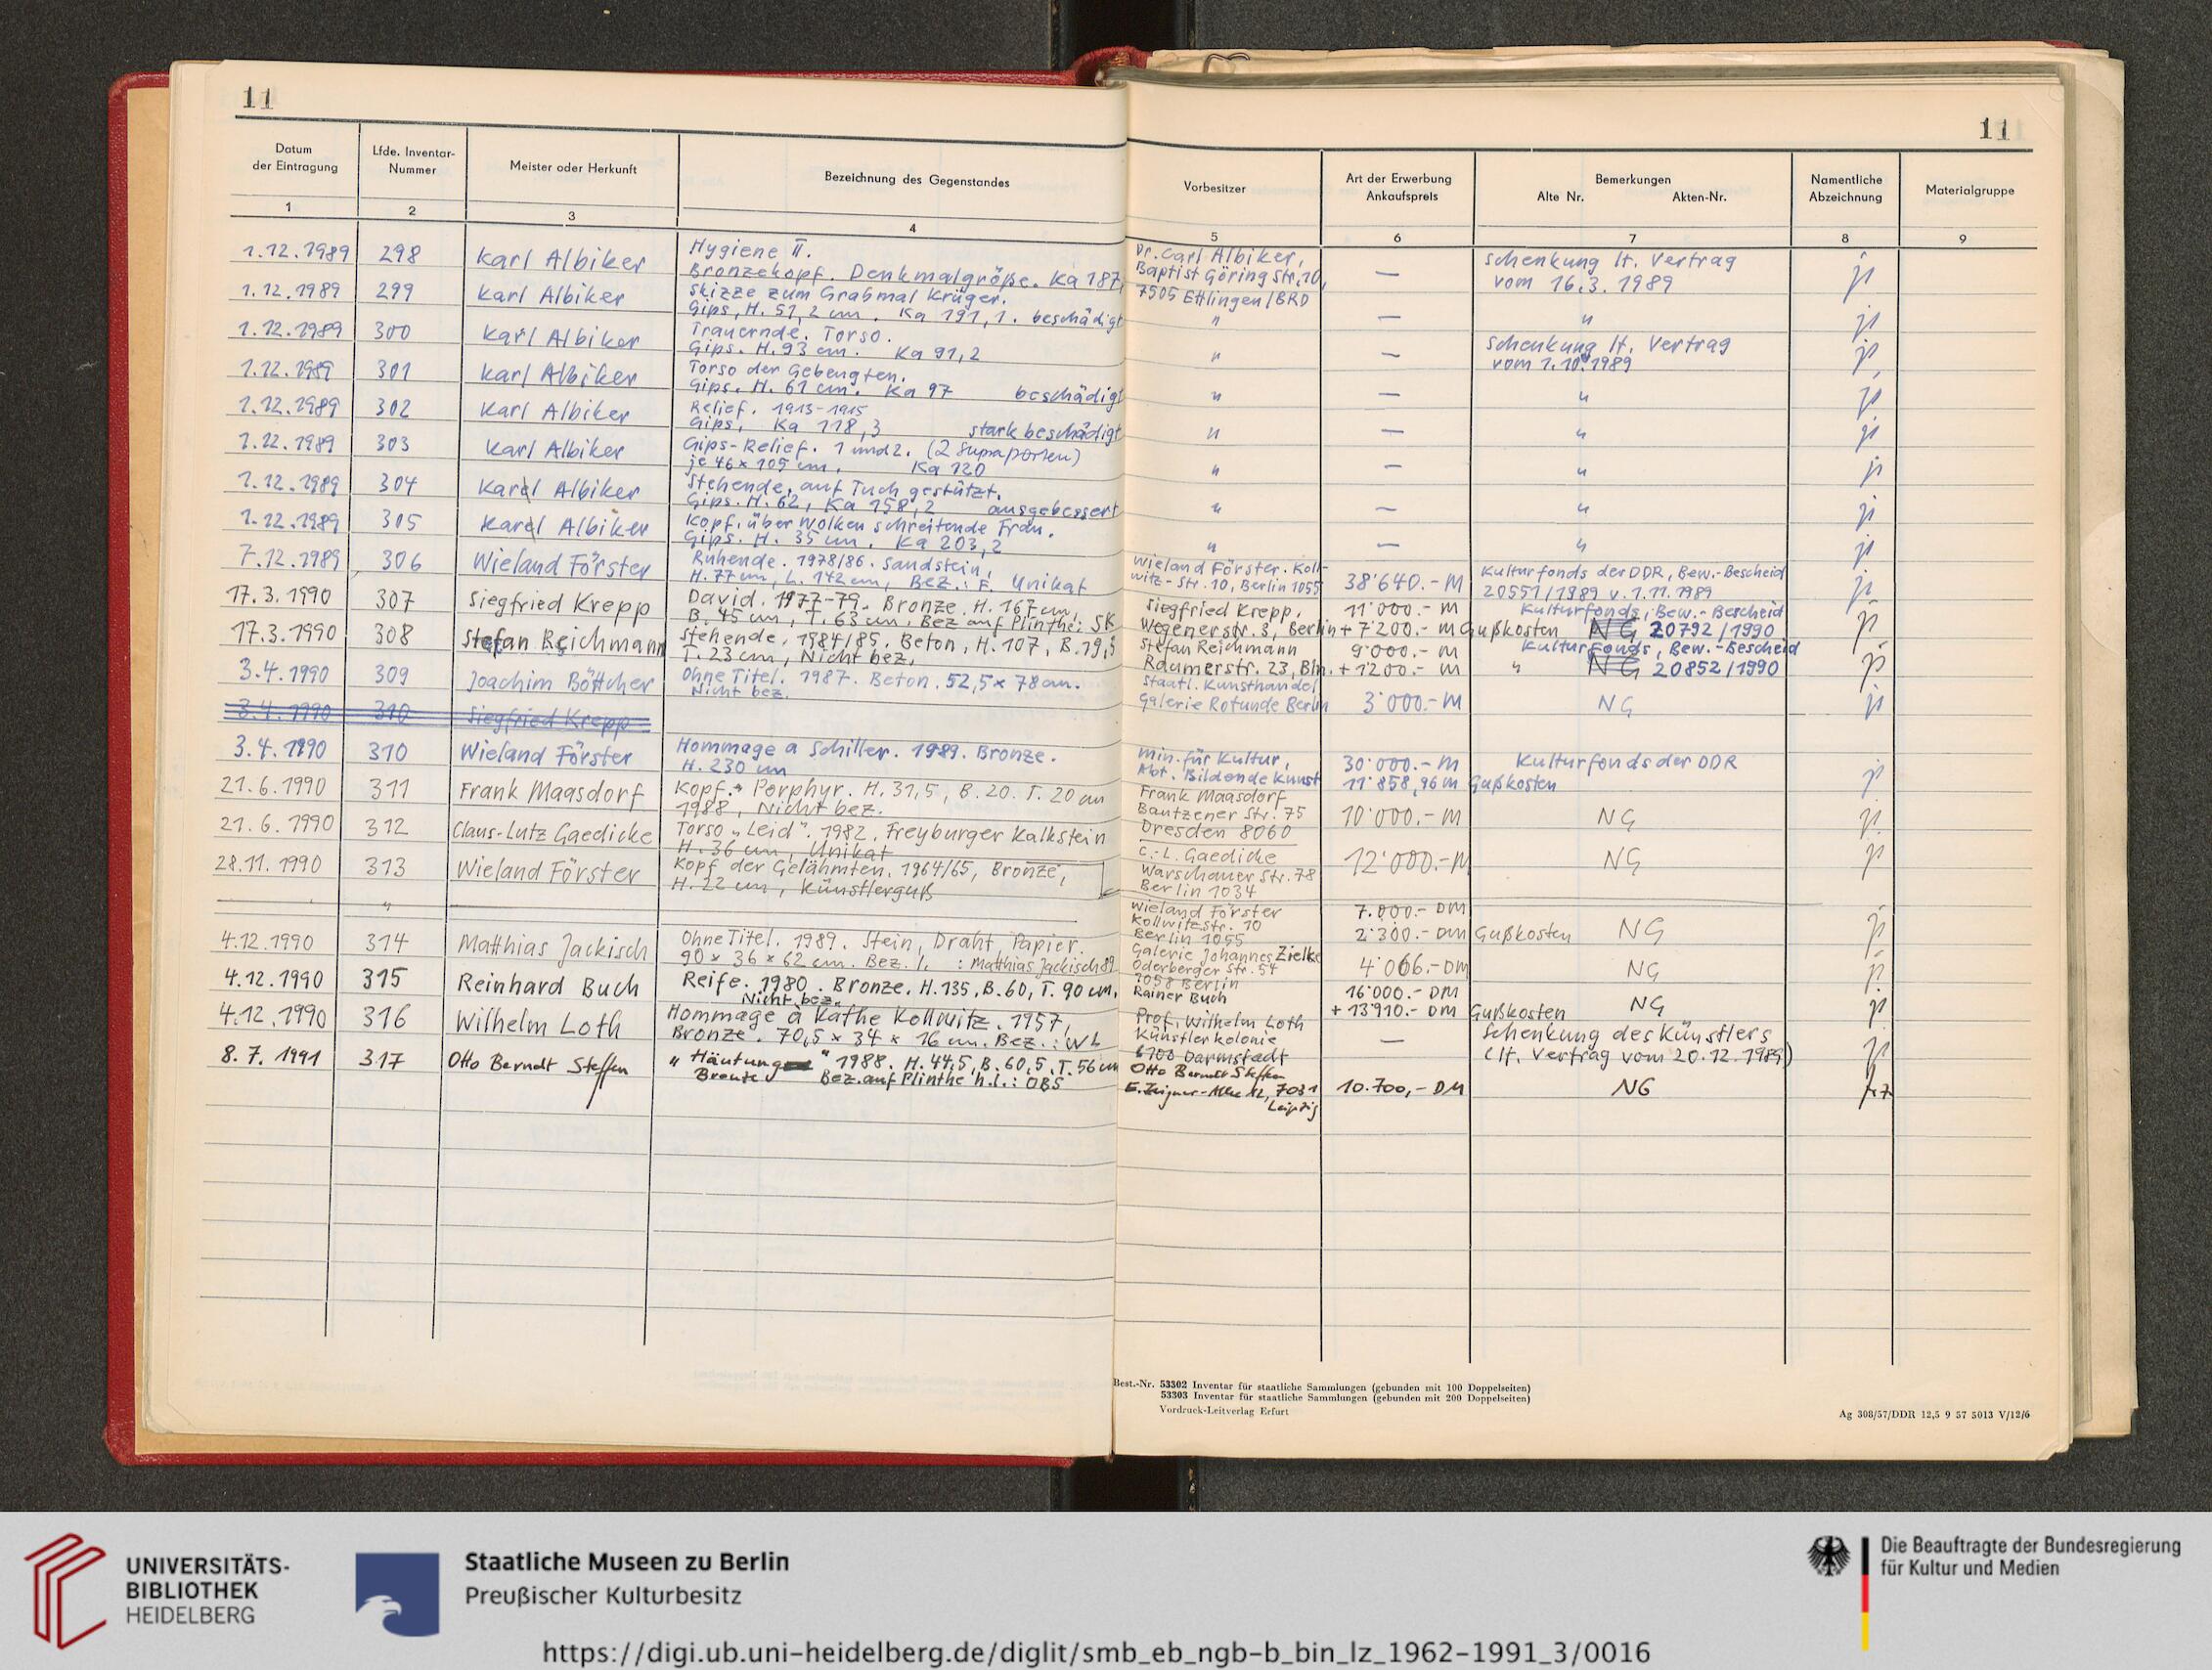 11
Datum der Eintragung
Lfde. Inventar-Nummer
Meister oder Herkunft
Bezeichnung des Gegenstandes
1 2 3 4
1.12.1989 298 Karl Albiker Hygiene II.
Bronzekopf. Denkmalgröße. Ka 187,
1.12.1989 299 Karl Albiker Skizze zum Grabmal Krüger.
Gips, H. 51,2 cm. Ka 191,1. beschädigt
1.12.1989 300 Karl Albiker Trauernde. Torso.
Gips. H. 93 cm. Ka 91,2
1.12.1989 301 Karl Albiker Torso der Gebeugten.
Gips. H. 61 cm. Ka 97 beschädigt
1.12.1989 302 Karl Albiker Relief. 1913-1915
Gips. Ka 118,3 stark beschädigt
1.12.1989 303 Karl Albiker Gips-Relief. 1 und 2. (2 Supraporten)
je 46 x 105 cm. Ka 120
1.12.1989 304 Karl Albiker Stehende, auf Tuch gestützt.
Gips. H. 62, Ka 158,2 ausgebessert
1.12.1989 305 Karl Albiker Kopf, über Wolken schreitende Frau.
Gips. H. 35 cm. Ka 203,2
7.12.1989 306 Wieland Förster Ruhende. 1978/86. Sandstein,
H. 77 cm, L. 142 cm, Bez.: F. Unikat
17.3.1990 307 Siegfried Krepp David. 1977-79. Bronze. H. 167 cm,
B. 45 cm, T. 63 cm. Bez auf Plinthe: SK
17.3.1990 308 Stefan Reichmann Stehende. 1984/85. Beton, H. 107, B. 19,5
T. 23 cm, Nicht bez.
3.4.1990 309 Joachim Böttcher Ohne Titel. 1987. Beton. 52,5 x 78 cm.
Nicht bez.
3.4.1990 310 Siegfried Krepp
3.4.1990 310 Wieland Förster Hommage a Schiller. 1989. Bronze.
H. 230 cm
21.6.1990 311 Frank Maasdorf Kopf. Porphyr. H. 31,5, B. 20. T. 20 cm
1988, Nicht bez.
21.6.1990 312 Claus-Lutz Gaedicke Torso "Leid". 1982. Freyburger Kalkstein
H. 36 cm, Unikat
28.11.1990 313 Wieland Förster Kopf der Gelähmten. 1964/65, Bronze,
H. 22 cm, Künstlerguß
"
4.12.1990 314 Matthias Jackisch Ohne Titel. 1989. Stein, Draht, Papier.
90 x 36 x 62 cm. Bez. l. : Matthias Jackisch 89
4.12.1990 315 Reinhard Buch Reife. 1980. Bronze. H. 135, B. 60, T. 90 cm.
Nicht bez.
4.12.1990 316 Wilhelm Loth Hommage à Käthe Kollwitz. 1957,
Bronze. 70,5 x 34 x 16 cm. Bez.: WL
8.7.1991 317 Otto Berndt Steffen "Häutung" 1988. H. 44,5, B. 60,5, T. 56 cm
Bronze Bez. auf Plinthe h.l.: OBS
11
Vorbesitzer
Art der Erwerbung Ankaufspreis
Bemerkungen
Alte Nr. Akten-Nr.
Namentliche Abzeichnung
Materialgruppe
5 6 7 8 9
Dr. Carl Albiker, Schenkung lt. Vertrag
Baptist Göring Str. 10, — vom 16.3.1989
7505 Ettlingen/BRD
" — "
" — Schenkung lt. Vertrag
vom 1.10.1989
" — "
" — "
" — "
" — "
" — "
Wieland Förster. Koll- Kulturfonds der DDR, Bew.-Bescheid
witz-Str. 10, Berlin 1055 38'640.- M 20551/1989 v. 1.11.1989
Siegfried Krepp, 11'000.- M Kulturfonds, Bew.-Bescheid
Wegenerstr. 3, Berlin + 7'200.- M Gußkosten NG 20792/1990
Stefan Reichmann 9'000.- M Kulturfonds, Bew.-Bescheid
Raumerstr. 23, Bln. + 1'200.- M " NG 20852/1990
Staatl. Kunsthandel
Galerie Rotunde Berlin 3'000.- M NG
Min. für Kultur, 30'000.- M Kulturfonds der DDR
Abt. Bildende Kunst 11'858,96 M Gußkosten
Frank Maasdorf
Bautzener Str. 75 10'000.- M NG
Dresden 8060
C.-L. Gaedicke 12'000.- M NG
Warschauer Str. 78
Berlin 1034
Wieland Förster 7.000.- DM
Kollwitzstr. 10
Berlin 1055 2'300.- DM Gußkosten NG
Galerie Johannes Zielke
Oderberger Str. 54 4'066.- DM NG
1058 Berlin
Rainer Buch 16'000.- DM
+ 13'910.- DM Gußkosten NG
Prof. Wilhelm Loth Schenkung des Künstlers
Künstlerkolonie — (lt. Vertrag vom 20.12.1989)
6100 Darmstadt
Otto Berndt Steffen
E. Zeigner-Allee 12, 7031 10.700,- DM NG
Leipzig
Best.-Nr. 53302 Inventar für staatliche Sammlungen (gebunden mit 100 Doppelseiten)
53303 Inventar für staatliche Sammlungen (gebunden mit 200 Doppelseiten)
Vordruck-Leitverlag Erfurt
Ag 308/57/DDR 12,5 9 57 5013 V/12/6
UNIVERSITÄTS-
BIBLIOTHEK
HEIDELBERG
Staatliche Museen zu Berlin
Preußischer Kulturbesitz
Die Beauftragte der Bundesregierung
für Kultur und Medien
https://digi.ub.uni-heidelberg.de/diglit/smb_eb_ngb-b_bin_lz_1962-1991_3/0016